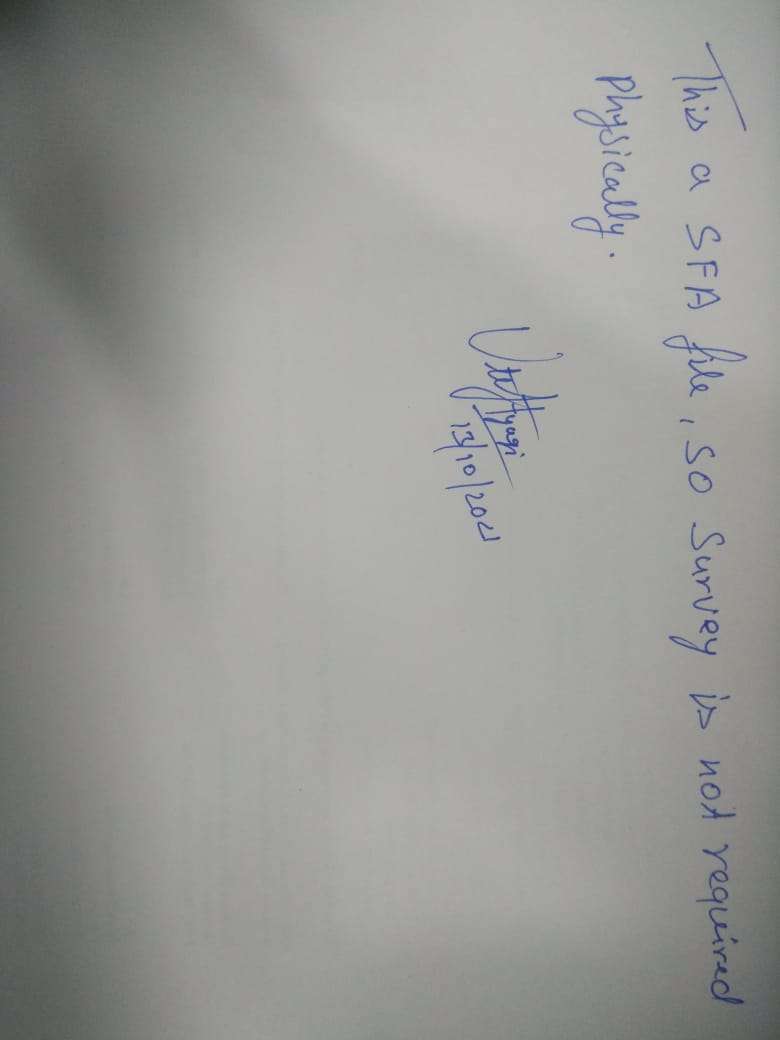 This a SFA file, so survey is not required
physically.
tyagi
13/10/2021